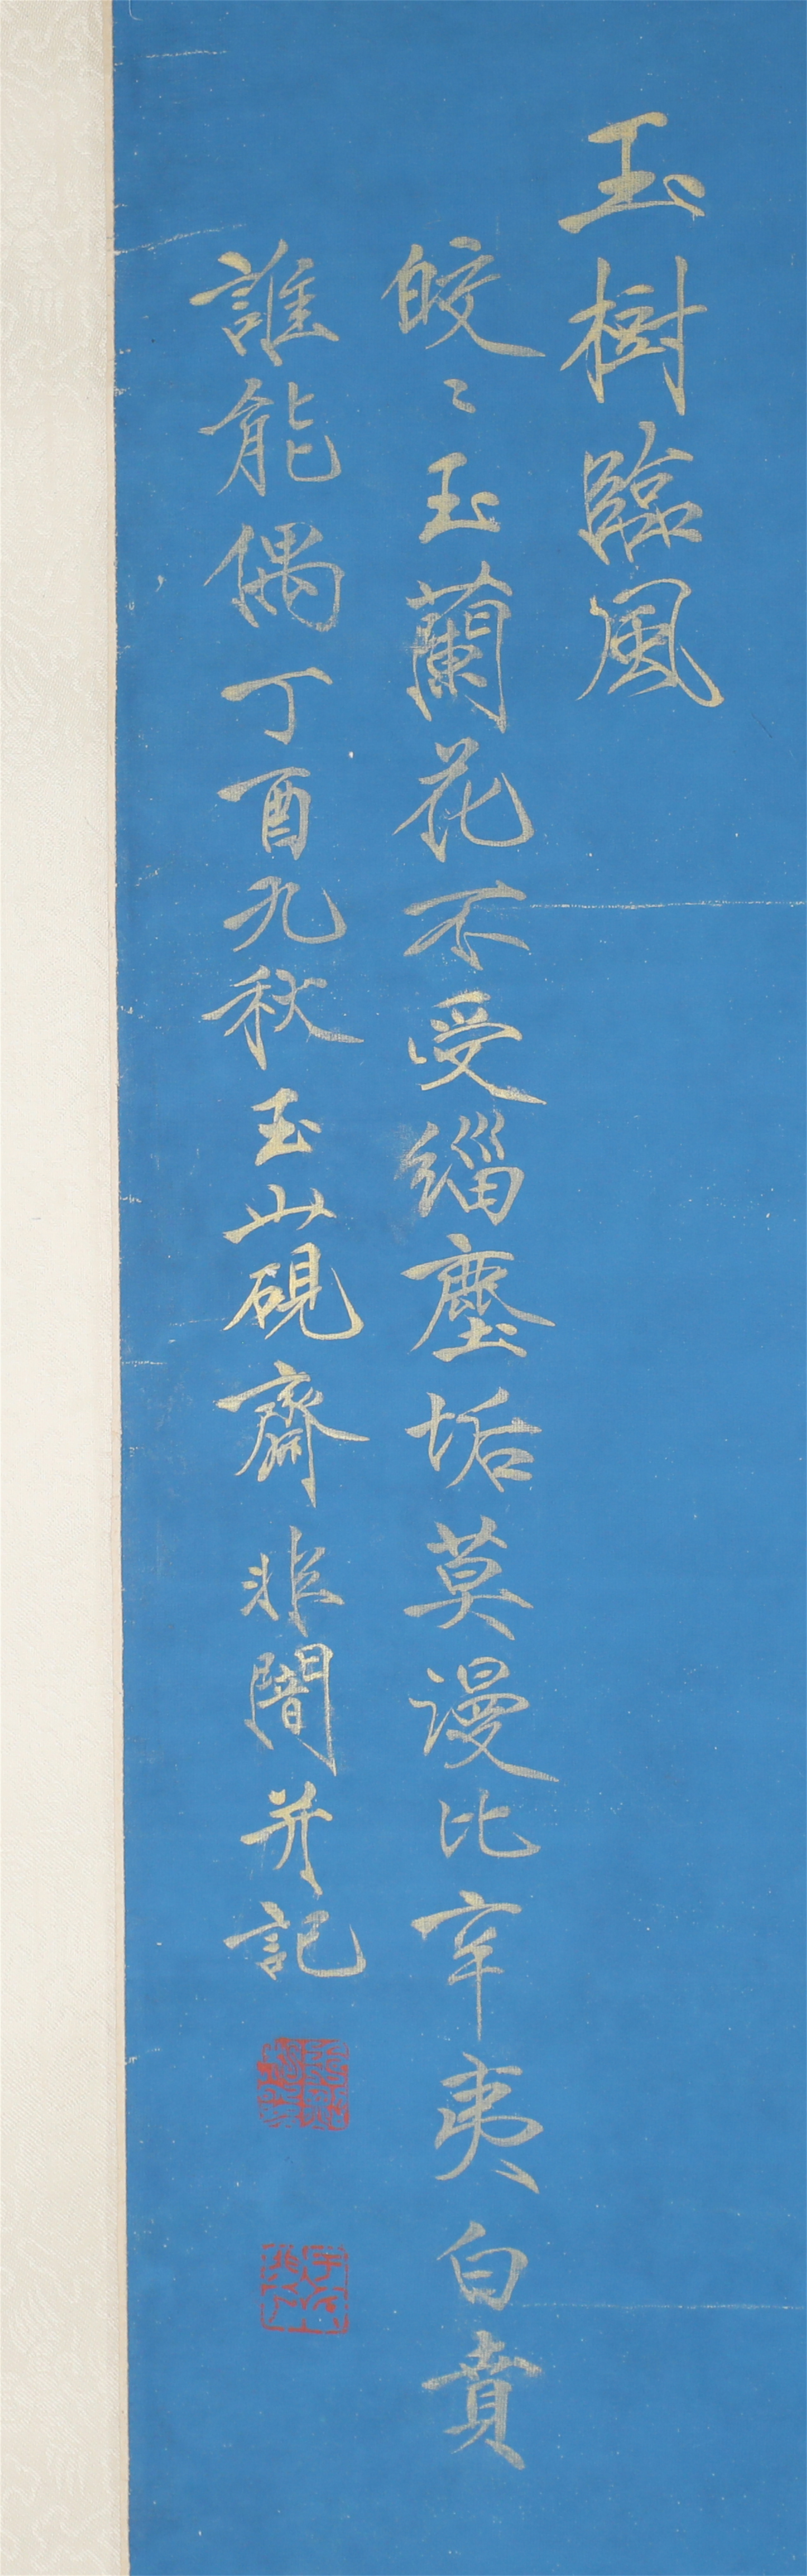 玉樹臨風
皎〻玉蘭花不受緇塵垢莫謾比辛夷白賁
誰能偶丁酉九秋玉山硯齋非闇并記